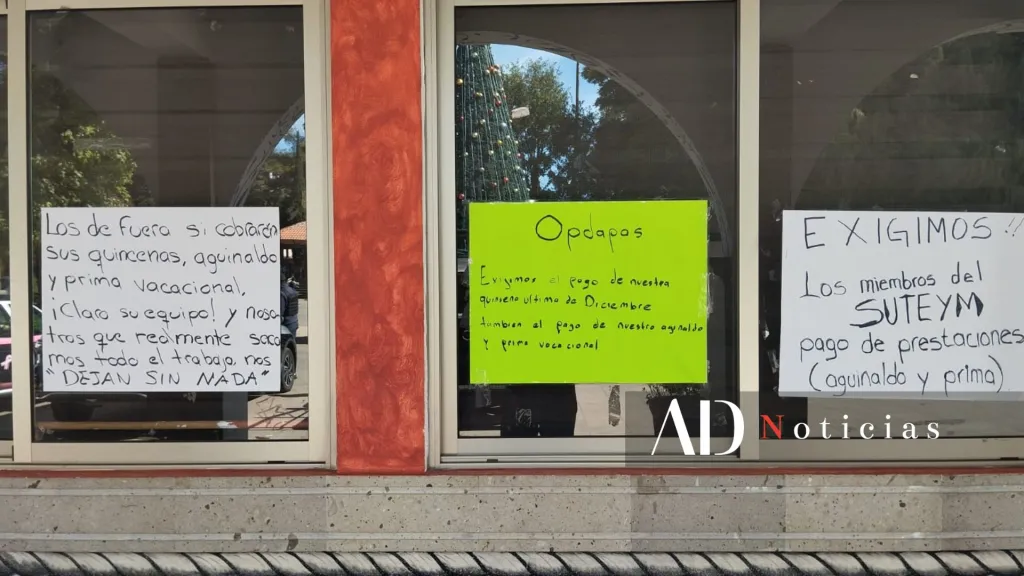 Los de Fuera si cobraron
sus quincenas, aguinaldo
y prima vacacional,
¡Claro su equipo! y noso
tros que realmente saca
mos todo el trabajo, nos
"DEJAN SIN NADA"
Opdapas
Exigimos el pago de nuestra
quincena ultima de Diciembre
tambien el pago de nuestro aguinaldo
y prima vacacional
EXIGIMOS!!
Los miembros del
SUTEYM
pago de prestaciones
(aguinaldo y prima)
AD Noticias